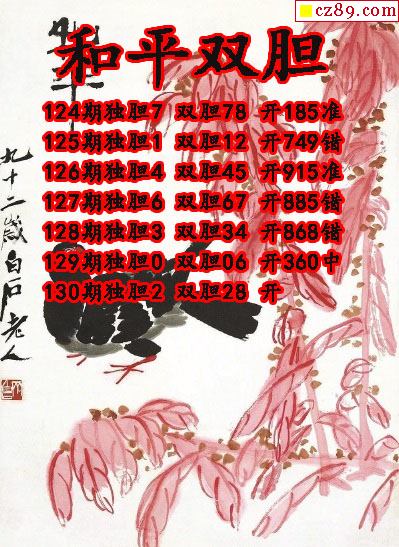 cz89.com
和平
和平双胆
124期独胆7 双胆78 开185准
125期独胆1 双胆12 开749错
126期独胆4 双胆45 开915准
127期独胆6 双胆67 开885错
128期独胆3 双胆34 开868错
129期独胆0 双胆06 开360中
130期独胆2 双胆28 开
九十二岁白石老人